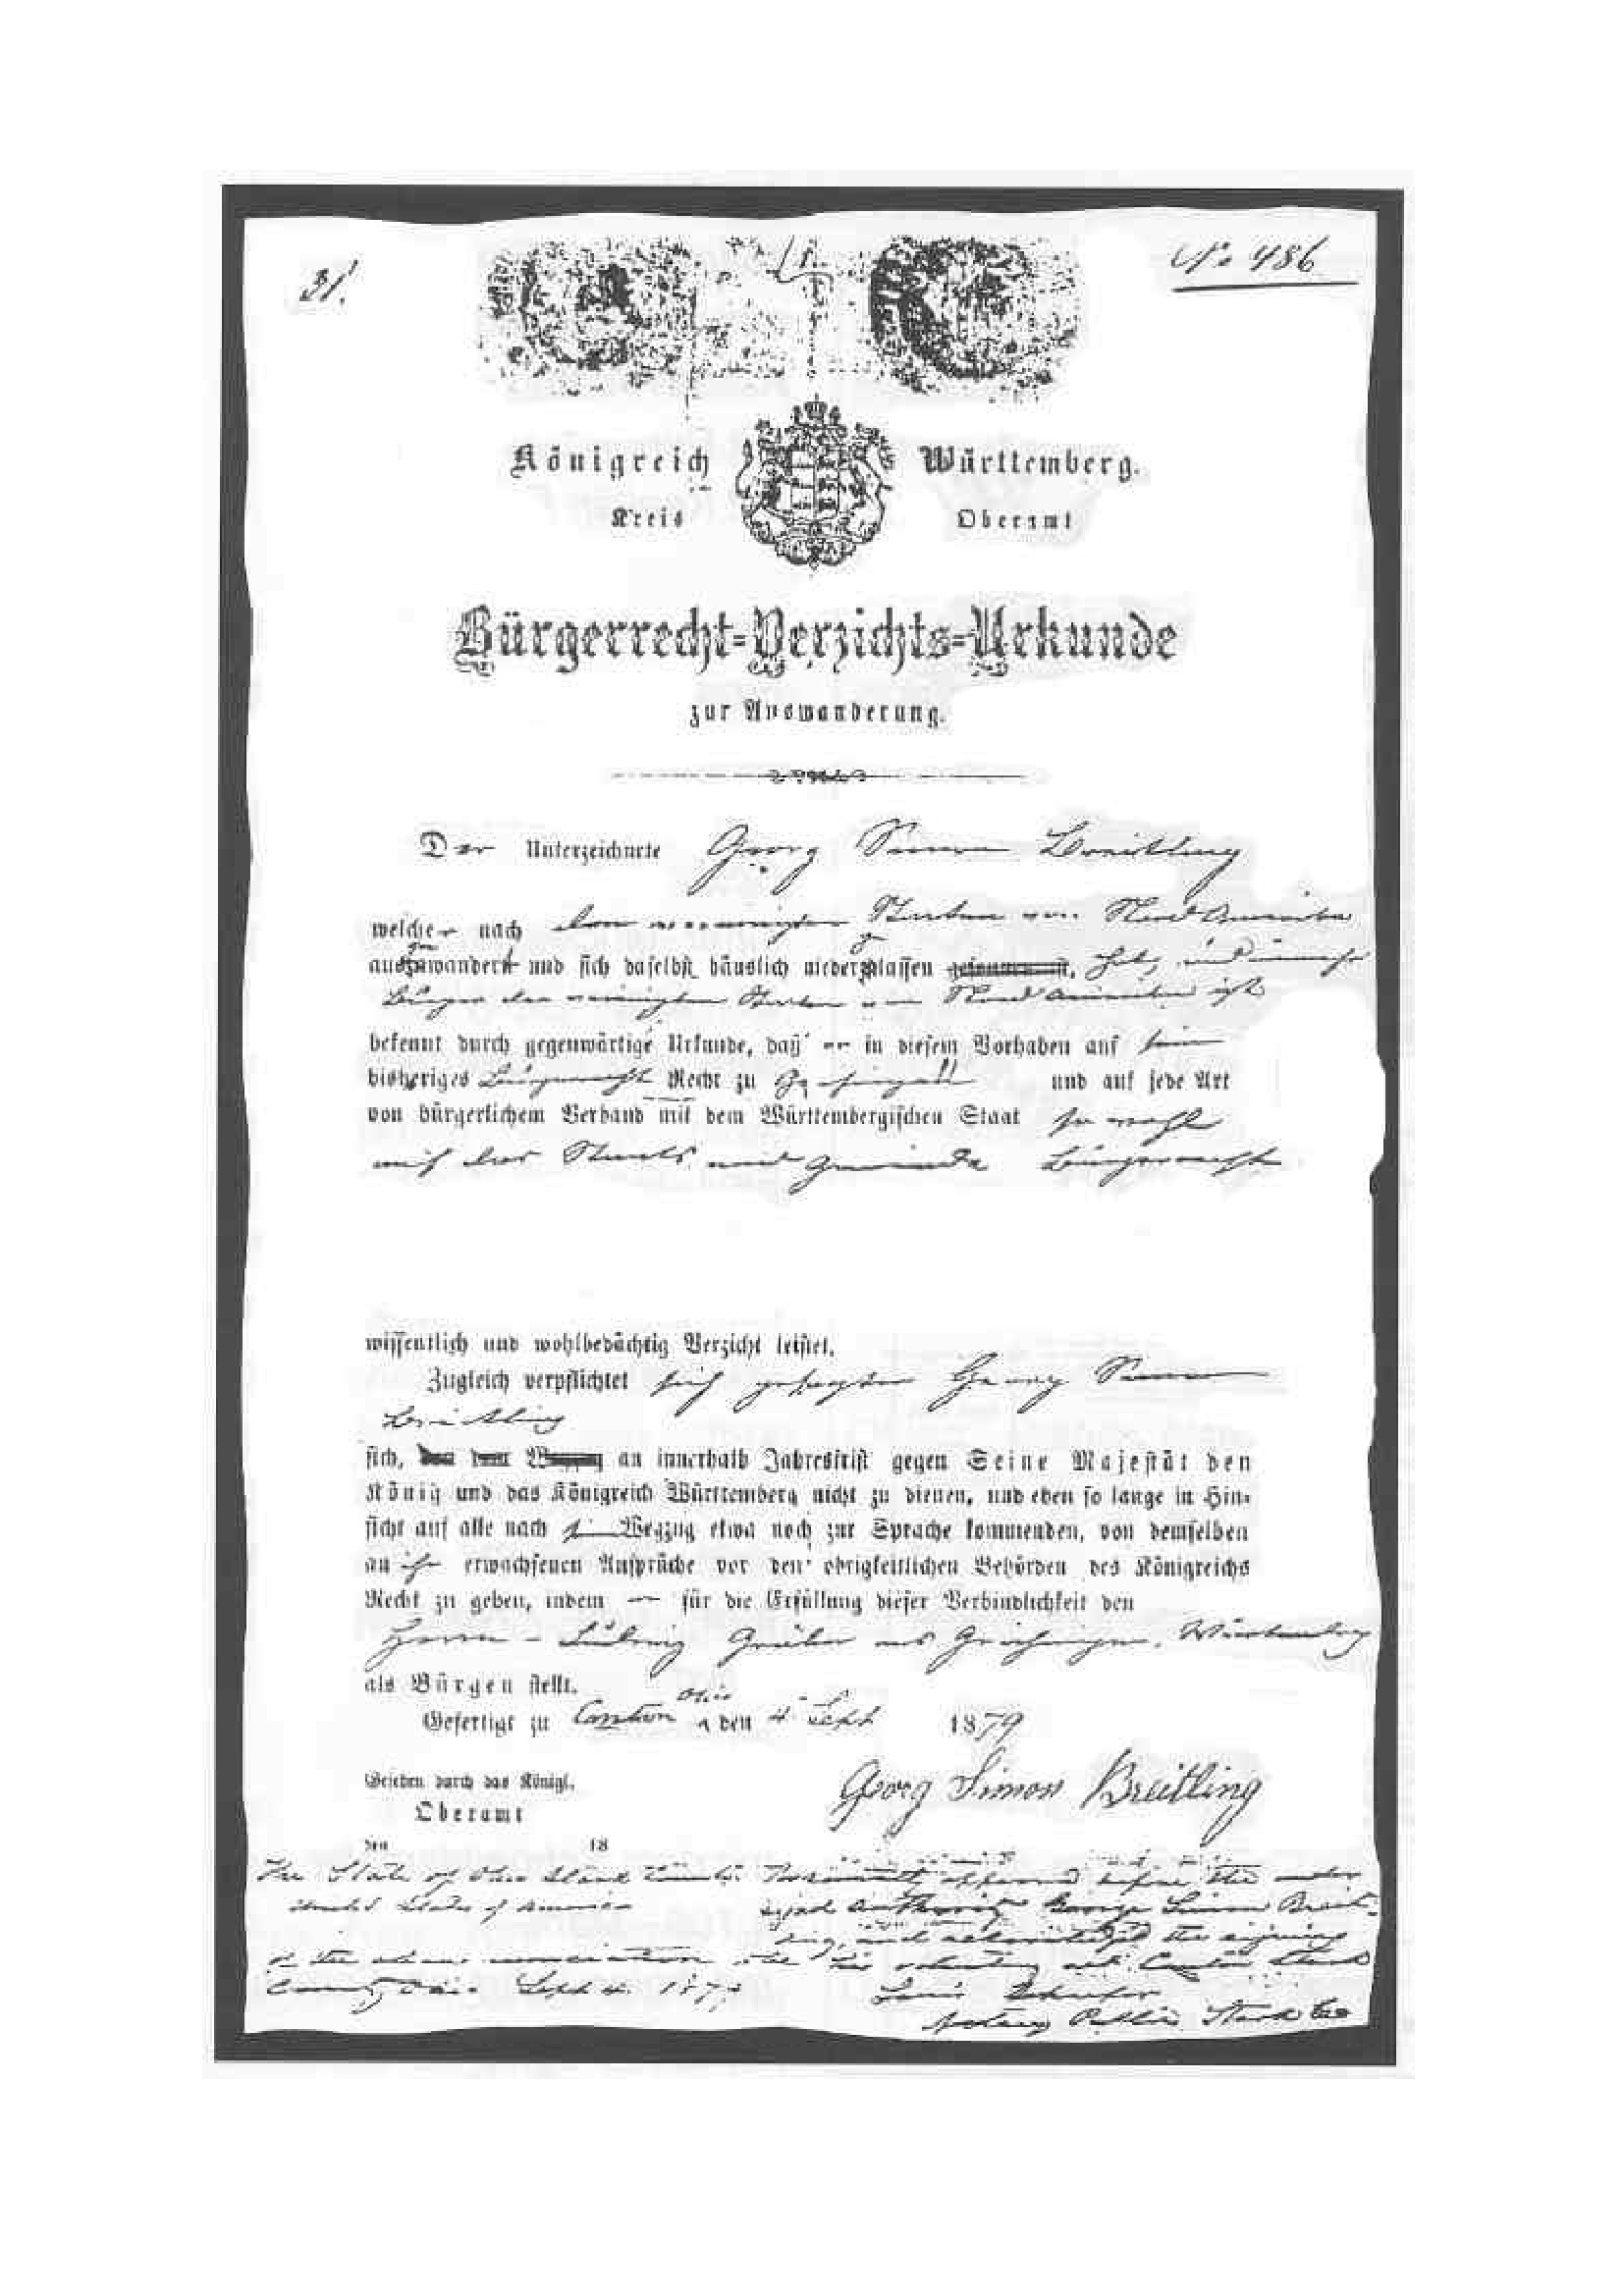 31.
No 486
Königreich Württemberg.
Kreis Oberamt
Bürgerrecht-Verzichts-Urkunde
zur Auswanderung.
Der Unterzeichnete Georg Simon Breitling
welcher nach den vereinigten Staaten von Nord Amerika
ausgewandert und sich daselbst häuslich niedergelassen hat, und
Bürger der vereinigten Staaten von Nord Amerika ist
bekennt durch gegenwärtige Urkunde, daß er in diesem Vorhaben auf sein
bisheriges Bürgerrecht Recht zu und auf jede Art
von bürgerlichem Verband mit dem Württembergischen Staat so wohl
auf das Staats und Gemeinde Bürgerrecht
wissentlich und wohlbedächtig Verzicht leistet.
Zugleich verpflichtet sich gesagter Georg Simon
Breitling
sich, an innerhalb Jahresfrist gegen Seine Majestät den
König und das Königreich Württemberg nicht zu dienen, und eben so lange in Hin-
sicht auf alle nach Wegzug etwa noch zur Sprache kommenden, von demselben
an ihn erwachsenen Ansprüche vor den obrigkeitlichen Behörden des Königreichs
Recht zu geben, indem für die Erfüllung dieser Verbindlichkeit den
Herrn Ludwig aus Württemberg
als Bürgen stellt.
Ohio
Gefertigt zu Canton den 4 Sept 1879
Gesehen durch das Königl.
Oberamt
Georg Simon Breitling
Den 18
The State of Ohio Stark County Personally appeared before the under
United States of America signed Authority George Simon Breit-
ling, and acknowledged the signing
of the above renunciation to be his voluntary act. Canton Stark
County Ohio Sept 4. 1879
Louis Schaefer
Notary Public Stark Co